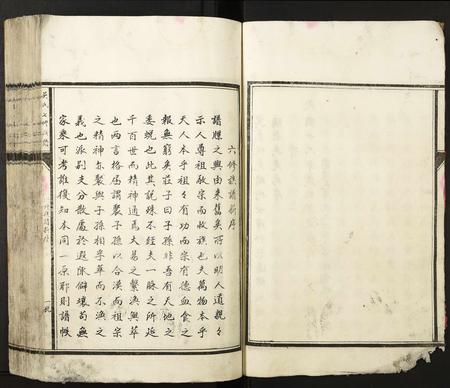 六修族譜新序
譜牒之興由來舊矣所以明人道親々
示人尊祖敬宗而收族也夫萬物本乎
天人本乎祖々有功而宗有德血食之
報無窮矣莊子曰子孫非吾有天地之
委蛻也比其說殊不經夫一脉之所延
千百世而精神通焉大易之繫渙與萃
也而言格廟謂聚子孫以合渙而祖宗
之精神亦聚與子孫相孚萃而不渙之
義也派別支分散處於遐陬僻壤苟無
家乘可考誰復知本同一原耶則譜牒
吳氏七修族譜
一